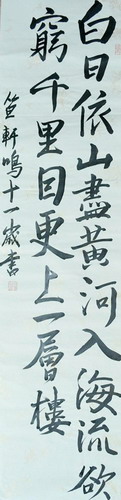 白日依山盡黃河入海流欲
窮千里目更上一層樓
笠軒鳴十一歲書